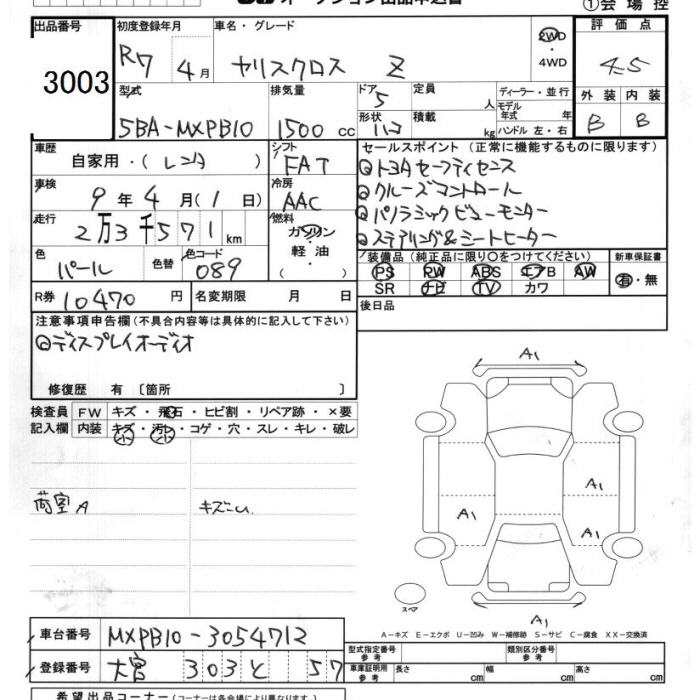 ①会場控
出品番号 3003
初度登録年月 R7 4月
車名・グレード ヤリスクロス Z
2WD・4WD
評価点 4.5
外装 B 内装 B
型式 5BA-MXPB10
排気量 1500 cc
ドア 5
形状 ハコ
定員 人
積載 kg
ディーラー・並行
モデル年式 年
ハンドル 左・右
車歴 自家用・(レンタ)
シフト FAT
車検 9年4月(1日)
冷房 AAC
走行 2万3千571km
燃料 ガソリン・軽油・( )
色 パール
色替
色コード 089
R券 10470円
名変期限 月 日
セールスポイント(正常に機能するものに限ります)
◎トヨタセーフティセンス
◎クルーズコントロール
◎パノラミックビューモニター
◎ステアリング&シートヒーター
装備品(純正品に限り○をつけてください)
PS PW ABS エアB AW
SR ナビ TV カワ
新車保証書 有・無
後日品
注意事項申告欄(不具合内容等は具体的に記入して下さい)
◎ディスプレイオーディオ
修復歴 有〔箇所 〕
検査員記入欄
FW キズ・飛石・ヒビ割・リペア跡・×要
内装 キズ・汚レ・コゲ・穴・スレ・キレ・破レ
荷室A キズ小
A1
A1
A1
A1
A1
スペア
A-キズ E-エクボ U-凹み W-補修跡 S-サビ C-腐食 XX-交換済
車台番号 MXPB10-3054712
登録番号 大宮 303 と 57
型式指定番号参考
類別区分番号参考
車庫証明用参考 長さ cm 幅 cm 高さ cm
希望出品コーナー(コーナーは各会場により異なります)